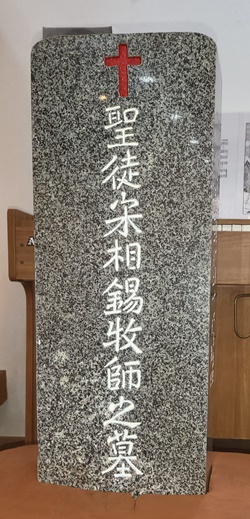 聖徒宋相錫牧師之墓